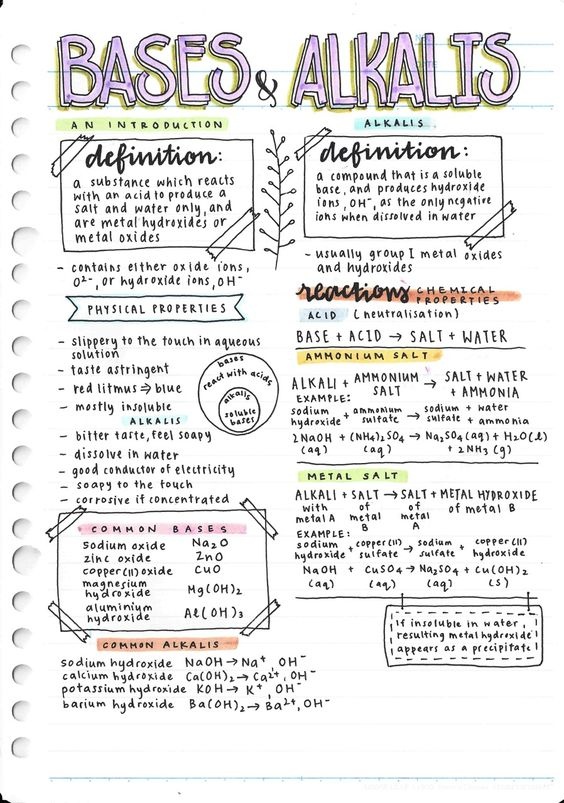 BASES & ALKALIS
AN INTRODUCTION
definition:
a substance which reacts
with an acid to produce a
salt and water only, and
are metal hydroxides or
metal oxides
- contains either oxide ions,
O²⁻, or hydroxide ions, OH⁻
PHYSICAL PROPERTIES
- slippery to the touch in aqueous
solution
- taste astringent
- red litmus ⇒ blue
- mostly insoluble
bases
react with acids
alkalis
soluble
bases
ALKALIS
- bitter taste, feel soapy
- dissolve in water
- good conductor of electricity
- soapy to the touch
- corrosive if concentrated
COMMON BASES
sodium oxide Na₂O
zinc oxide ZnO
copper(II) oxide CuO
magnesium
hydroxide Mg(OH)₂
aluminium
hydroxide Al(OH)₃
COMMON ALKALIS
sodium hydroxide NaOH → Na⁺, OH⁻
calcium hydroxide Ca(OH)₂ → Ca²⁺, OH⁻
potassium hydroxide KOH → K⁺, OH⁻
barium hydroxide Ba(OH)₂ → Ba²⁺, OH⁻
ALKALIS
definition:
a compound that is a soluble
base, and produces hydroxide
ions, OH⁻, as the only negative
ions when dissolved in water
- usually group I metal oxides
and hydroxides
reactions CHEMICAL
PROPERTIES
ACID (neutralisation)
BASE + ACID → SALT + WATER
AMMONIUM SALT
ALKALI + AMMONIUM → SALT + WATER
SALT + AMMONIA
EXAMPLE:
sodium + ammonium → sodium + water
hydroxide sulfate sulfate + ammonia
2NaOH + (NH₄)₂SO₄ → Na₂SO₄(aq) + H₂O(l)
(aq) (aq) + 2NH₃(g)
METAL SALT
ALKALI + SALT → SALT + METAL HYDROXIDE
with of of of metal B
metal A metal metal
B A
EXAMPLE:
sodium + copper(II) → sodium + copper(II)
hydroxide sulfate sulfate hydroxide
NaOH + CuSO₄ → Na₂SO₄ + Cu(OH)₂
(aq) (aq) (aq) (s)
If insoluble in water,
resulting metal hydroxide
appears as a precipitate